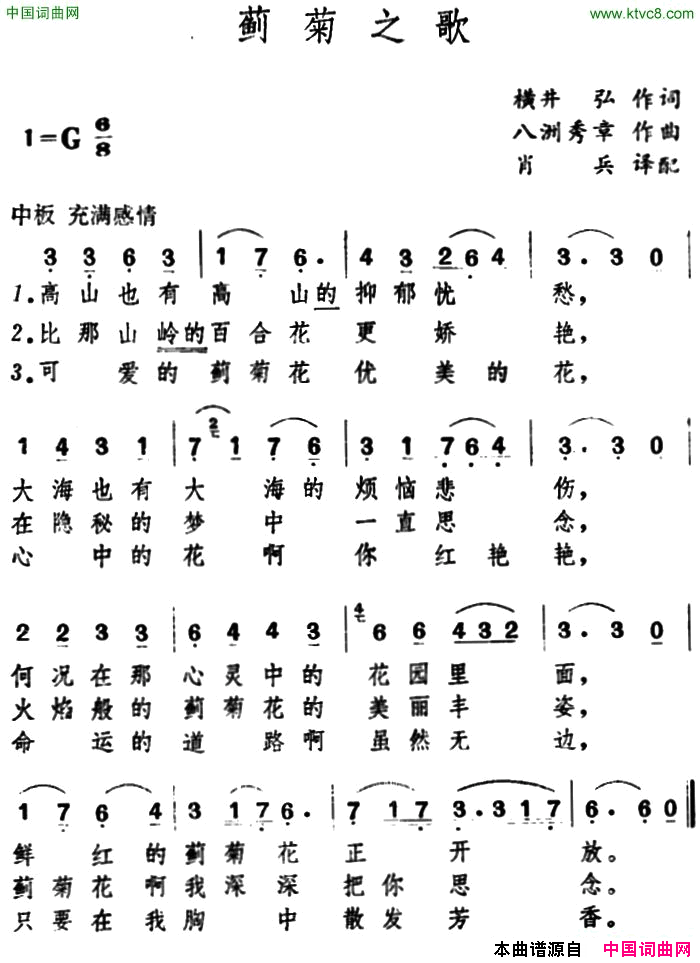 中国词曲网
www.ktvc8.com
蓟菊之歌
横井 弘 作词
1=G 6/8
八洲秀章 作曲
肖 兵 译配
中板 充满感情
3 3 6 3 | 1 7 6. | 4 3 2 6 4 | 3. 3 0 |
1.高山也有高山的抑郁忧愁，
2.比那山岭的百合花更娇艳，
3.可爱的蓟菊花优美的花，
1 4 3 1 | 7 2 1 7 6 | 3 1 7 6 4 | 3. 3 0 |
大海也有大海的烦恼悲伤，
在隐秘的梦中一直思念，
心中的花啊你红艳艳，
2 2 3 3 | 6 4 4 3 | 4 6 6 4 3 2 | 3. 3 0 |
何况在那心灵中的花园里面，
火焰般的蓟菊花的美丽丰姿，
命运的道路啊虽然无边，
1 7 6 4 | 3 1 7 6. | 7 1 7 3. 3 1 7 | 6. 6 0 ‖
鲜红的蓟菊花正开放。
蓟菊花啊我深深把你思念。
只要在我胸中散发芳香。
本曲谱源自 中国词曲网